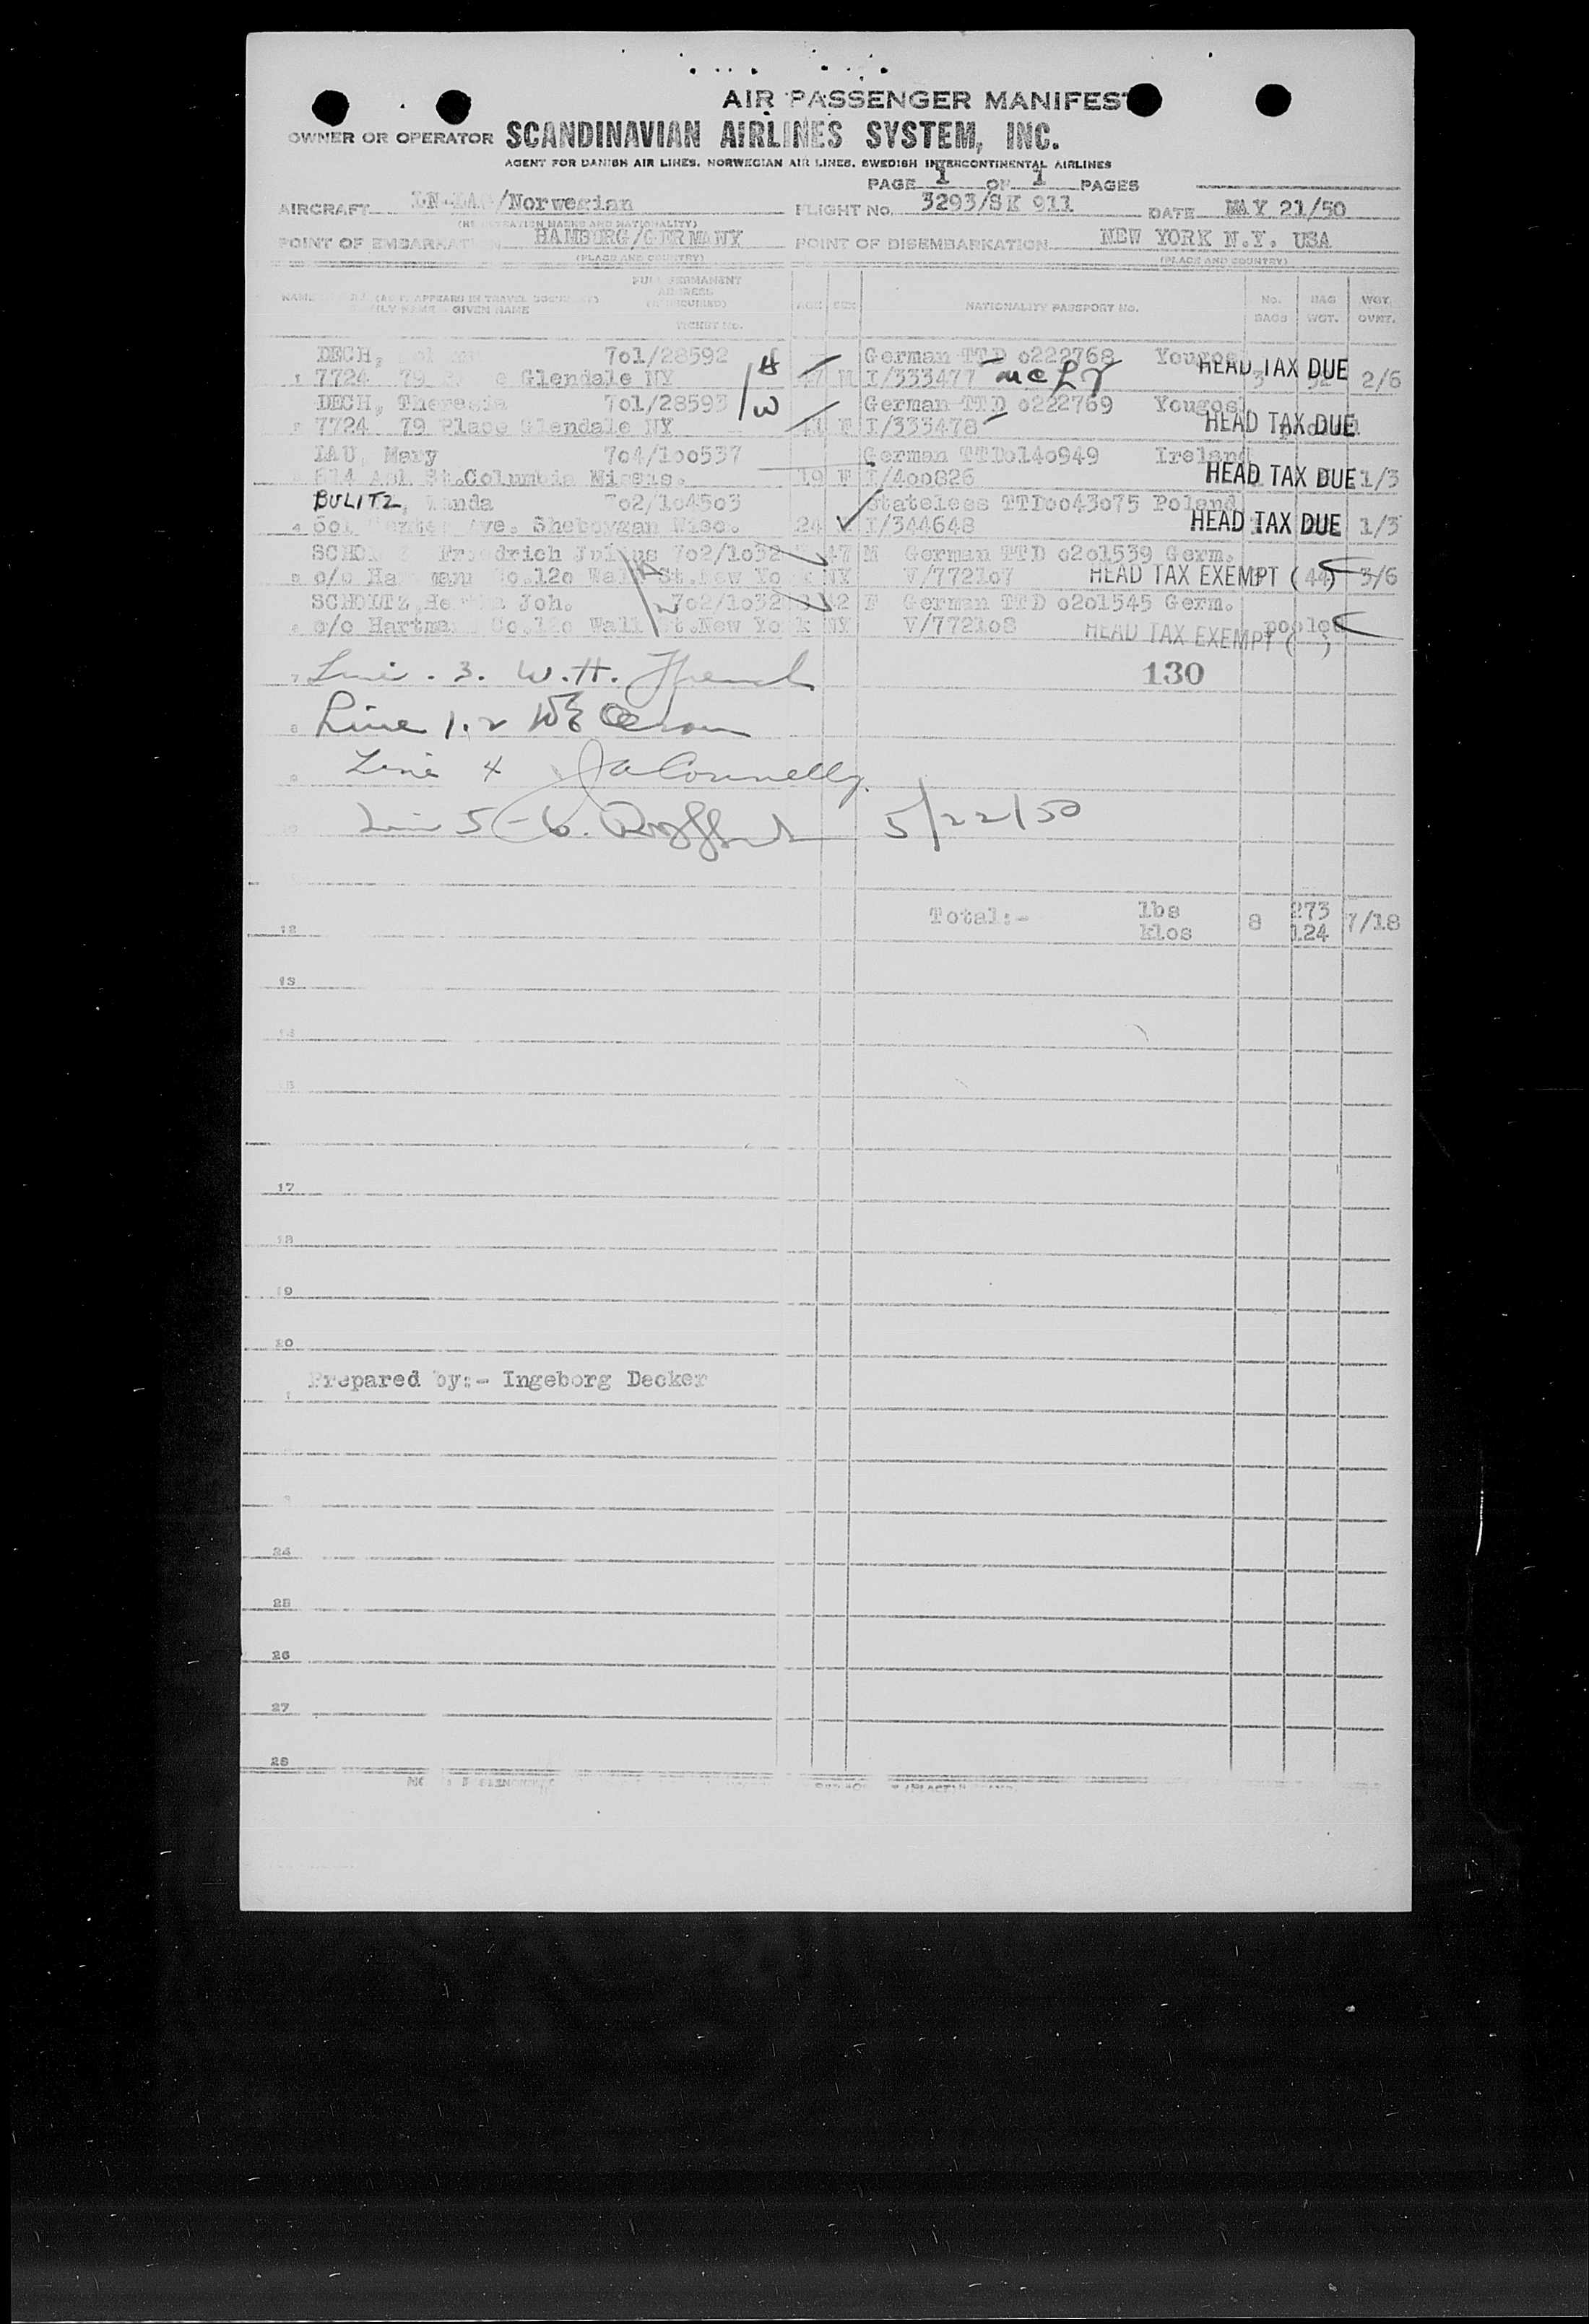 AIR PASSENGER MANIFES
OWNER OR OPERATOR SCANDINAVIAN AIRLINES SYSTEM, INC.
AGENT FOR DANISH AIR LINES. NORWEGIAN AIR LINES. SWEDISH INTERCONTINENTAL AIRLINES
PAGE 1 OF 1 PAGES
AIRCRAFT /Norwegian FLIGHT No. 3293/SK 911 DATE MAY 21/50
(REGISTRATION MARKS AND NATIONALITY)
POINT OF EMBARKATION HAMBURG/GERMANY POINT OF DISEMBARKATION NEW YORK N.Y. USA
(PLACE AND COUNTRY) (PLACE AND COUNTRY)
FULL PERMANENT
ADDRESS
NAME (AS IT APPEARS IN TRAVEL DOCUMENTS) (IF REQUIRED) AGE SEX NATIONALITY PASSPORT No. No. BAG WGT.
GIVEN NAME BAGS WGT. OVWT.
TICKET No.
DECH, 701/28592 H German TTD 0222768 Yougos
1 7724 79 Glendale NY 47 M I/333477 HEAD TAX DUE 3 2/6
DECH, Theresia 701/28593 W German TTD 0222769 Yougos
2 7724 79 Place Glendale NY 41 F I/333478 HEAD TAX DUE
LAU, Mary 704/100537 German TTD0140949 Ireland
614 Ash St.Columbia 19 F I/400826 HEAD TAX DUE 1/3
BULITZ, Wanda 702/104503 Stateless TTD0043075 Poland
4 Ave. Sheboygan Wisc. 24 I/344648 HEAD TAX DUE 1/3
Friedrich Julius 702/1032 47 M German TTD 0201539 Germ.
5 c/o Hartmann Co.120 Wall St.New York NY V/772107 HEAD TAX EXEMPT (44) 3/6
SCHOLTZ, Joh. 702/1032 42 F German TTD 0201545 Germ.
6 c/o Hartmann Co.120 Wall St.New York NY V/772108 HEAD TAX EXEMPT ( ) pooled
7 Line . 3. W.H. French 130
8 Line 1.2
9 Line 4 JA Connelly
10 Line 5-6. 5/22/50
Total:- lbs 8 273 7/18
12 klos 124
13
14
15
17
18
19
20
Prepared by:- Ingeborg Decker
24
25
26
27
28